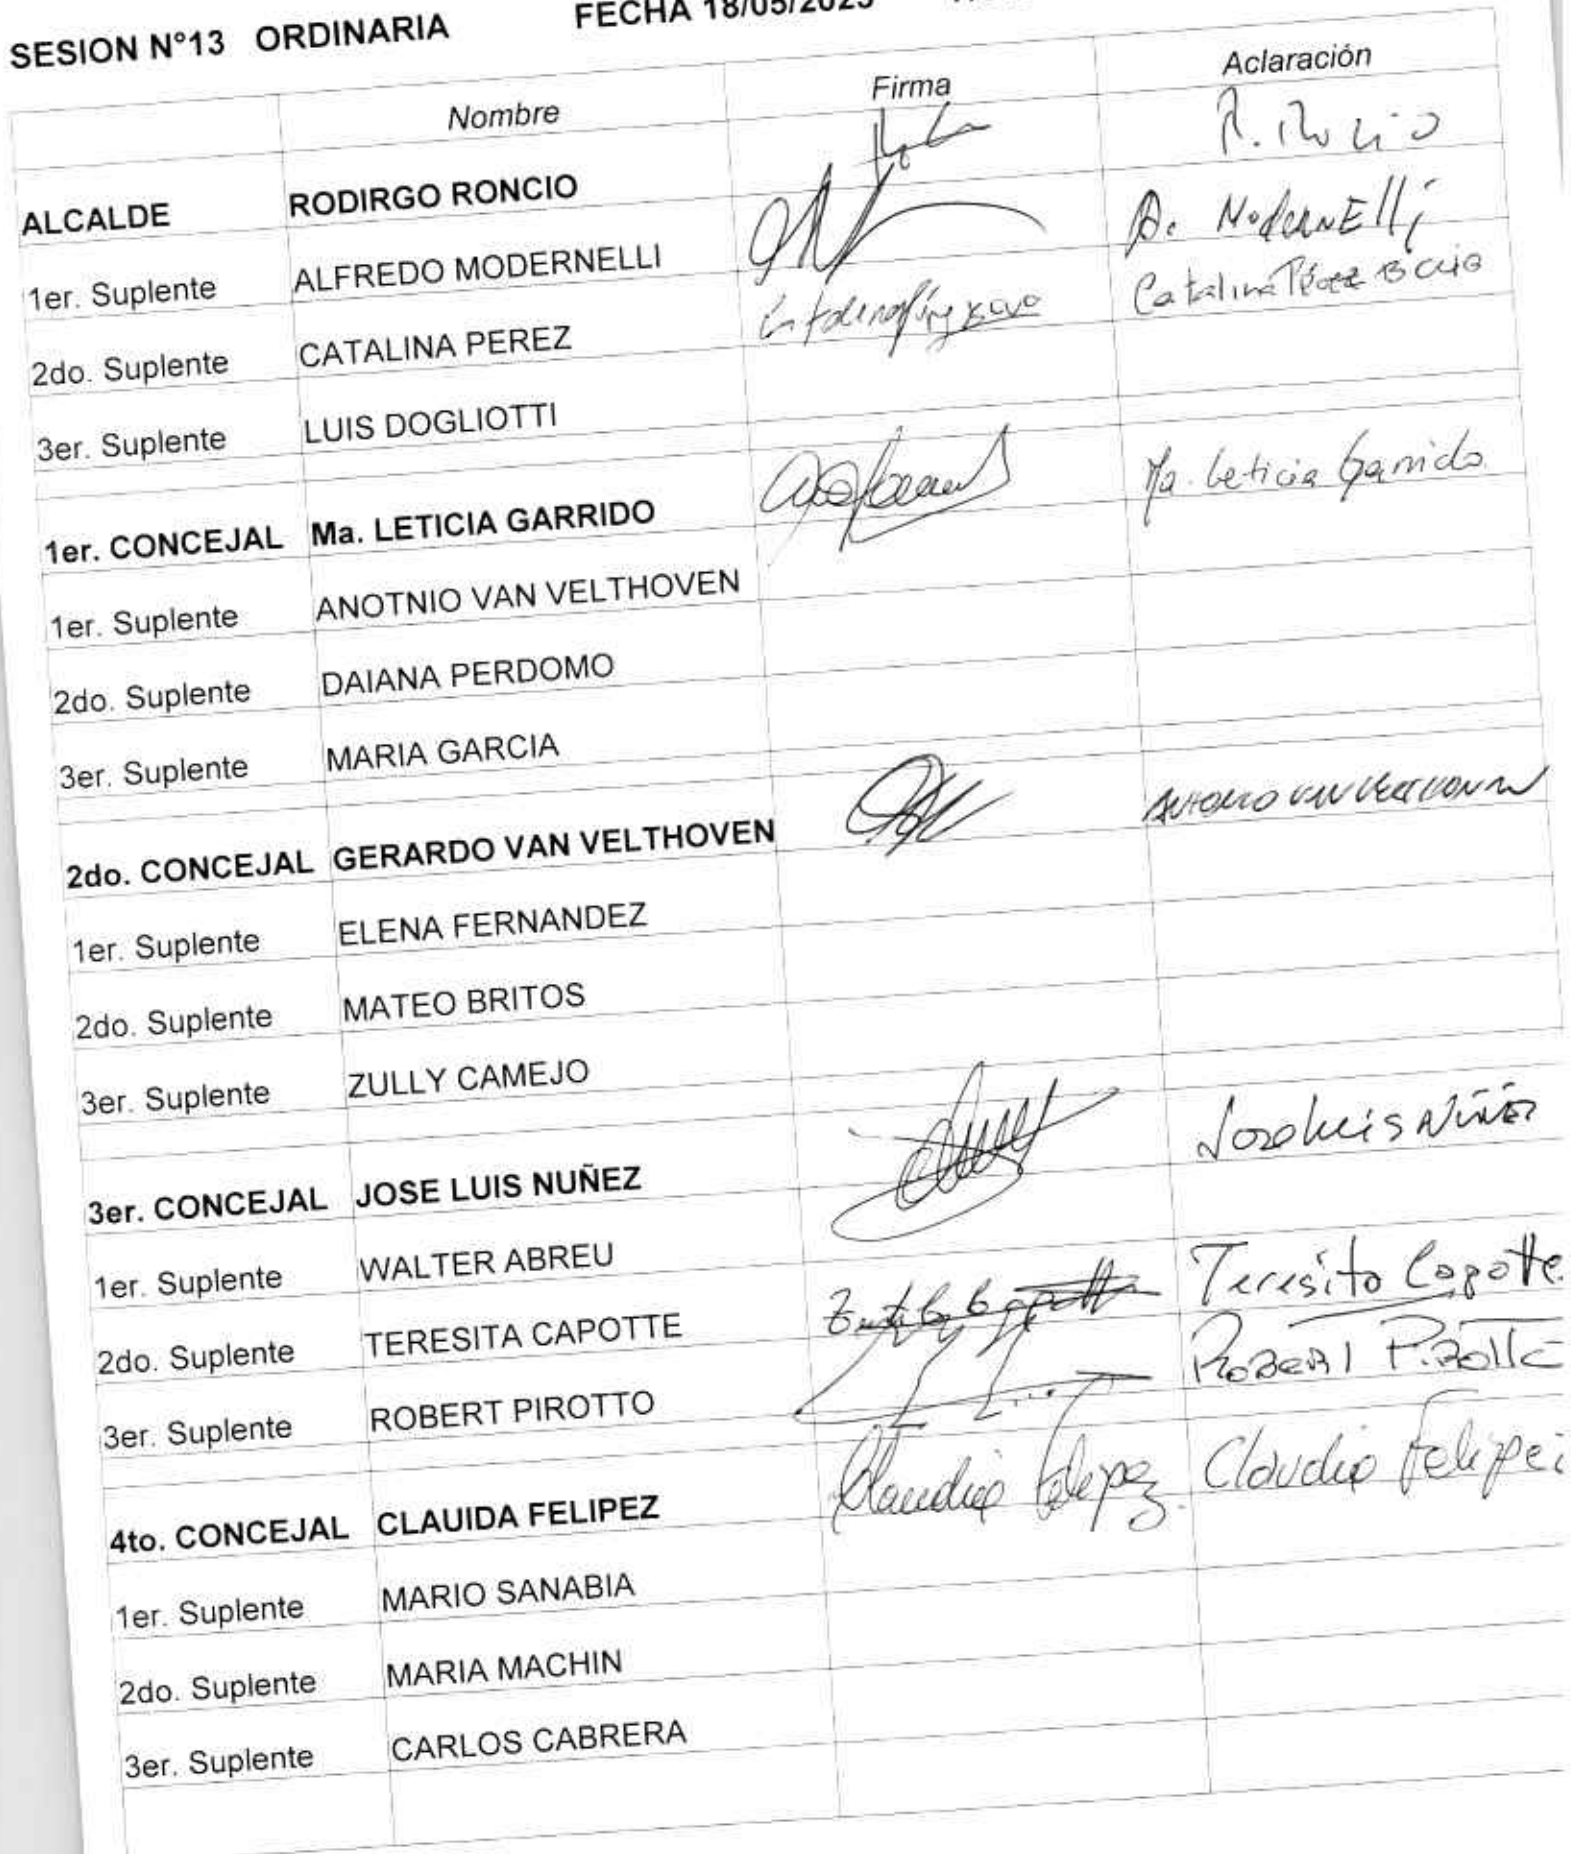 SESION N°13 ORDINARIA FECHA 18/05/2023
Nombre Firma Aclaración
ALCALDE RODIRGO RONCIO
1er. Suplente ALFREDO MODERNELLI A. ModernElli
2do. Suplente CATALINA PEREZ Catalina Pérez
3er. Suplente LUIS DOGLIOTTI
1er. CONCEJAL Ma. LETICIA GARRIDO Ma. Leticia Garrido
1er. Suplente ANOTNIO VAN VELTHOVEN
2do. Suplente DAIANA PERDOMO
3er. Suplente MARIA GARCIA
2do. CONCEJAL GERARDO VAN VELTHOVEN ANTONIO VAN VELTHOVEN
1er. Suplente ELENA FERNANDEZ
2do. Suplente MATEO BRITOS
3er. Suplente ZULLY CAMEJO
3er. CONCEJAL JOSE LUIS NUÑEZ Jose Luis Núñez
1er. Suplente WALTER ABREU
2do. Suplente TERESITA CAPOTTE Teresita Capotte
3er. Suplente ROBERT PIROTTO ROBERT PIROTTO
4to. CONCEJAL CLAUIDA FELIPEZ Claudia Felipez Claudia Felipe
1er. Suplente MARIO SANABIA
2do. Suplente MARIA MACHIN
3er. Suplente CARLOS CABRERA